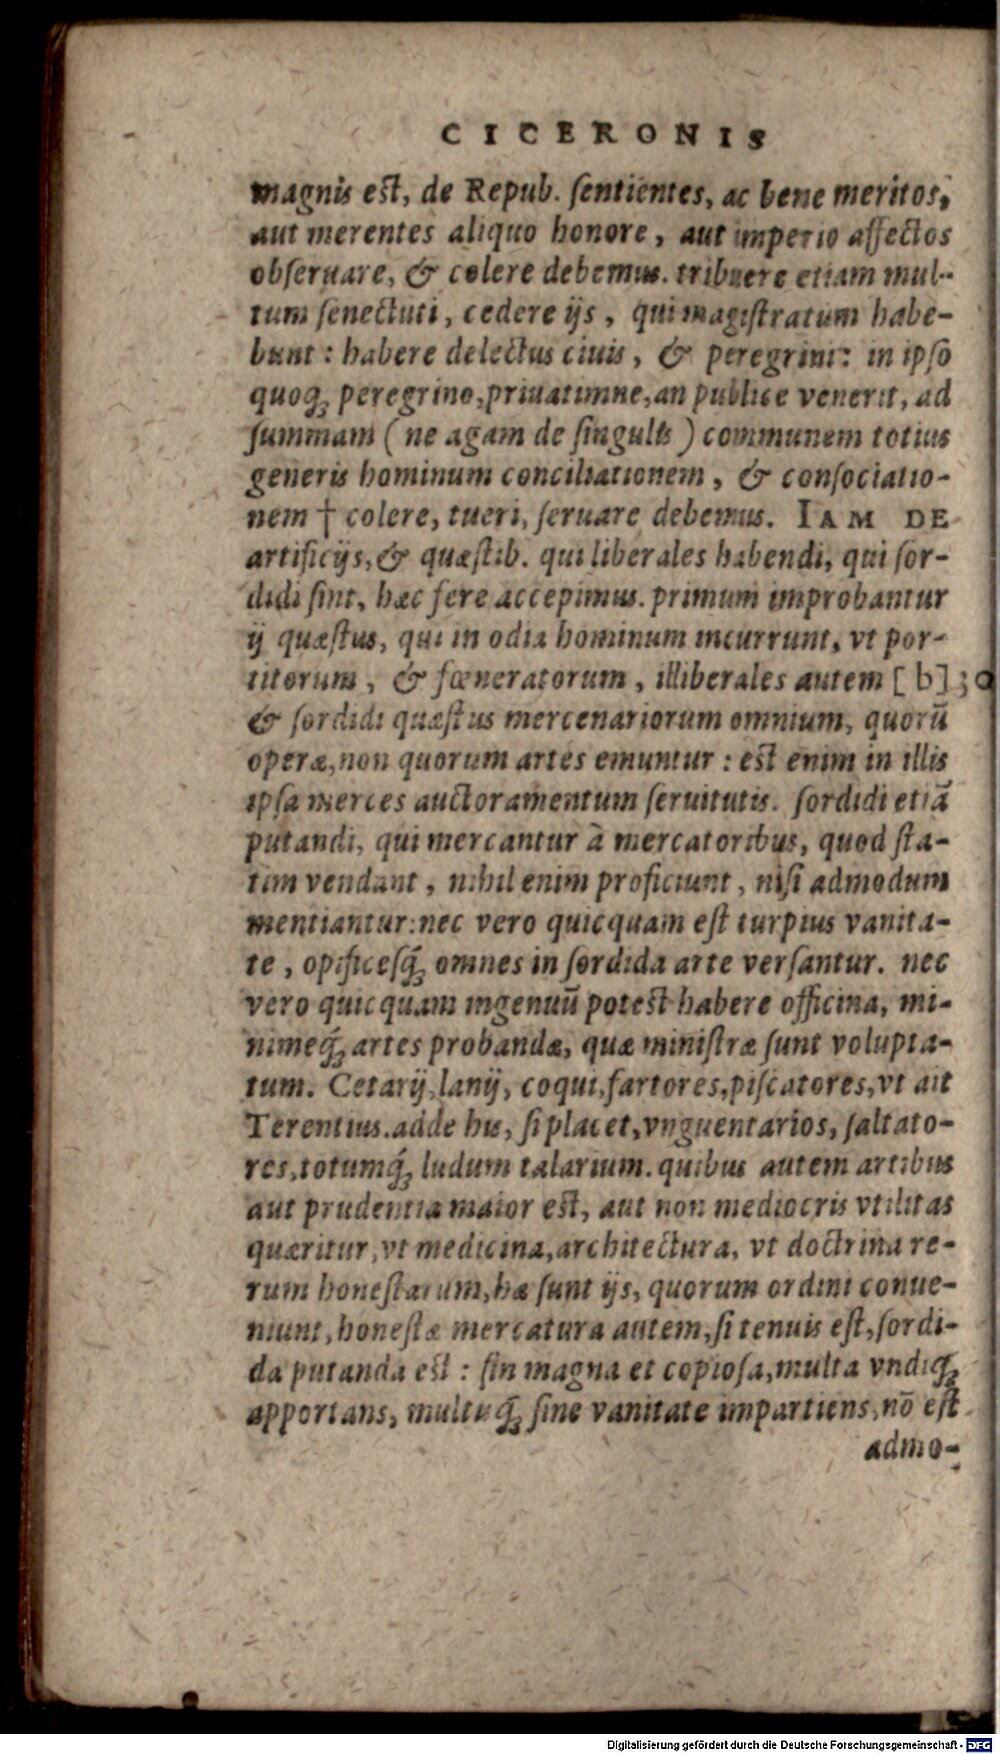 CICERONIS
magnis est, de Repub. sentientes, ac bene meritos,
aut merentes aliquo honore, aut imperio affectos
obseruare, & colere debemus. tribuere etiam mul-
tum senectuti, cedere ijs, qui magistratum habe-
bunt: habere delectus ciuis, & peregrini: in ipso
quoq; peregrino, priuatimne, an publice venerit, ad
summam (ne agam de singulis) communem totius
generis hominum conciliationem, & consociatio-
nem † colere, tueri, seruare debemus. IAM DE
artificijs, & quæstib. qui liberales habendi, qui sor-
didi sint, hæc fere accepimus. primum improbantur
ij quæstus, qui in odia hominum incurrunt, vt por-
titorum, & fœneratorum, illiberales autem [b] 30
& sordidi quæstus mercenariorum omnium, quorū
operæ, non quorum artes emuntur: est enim in illis
ipsa merces auctoramentum seruitutis. sordidi etiā
putandi, qui mercantur à mercatoribus, quod sta-
tim vendant, nihil enim proficiunt, nisi admodum
mentiantur: nec vero quicquam est turpius vanita-
te, opificesq́; omnes in sordida arte versantur. nec
vero quicquam ingenuū potest habere officina, mi-
nimeq́; artes probandæ, quæ ministræ sunt volupta-
tum. Cetarij, lanij, coqui, fartores, piscatores, vt ait
Terentius. adde his, si placet, vnguentarios, saltato-
res, totumq́; ludum talarium. quibus autem artibus
aut prudentia maior est, aut non mediocris vtilitas
quæritur, vt medicina, architectura, vt doctrina re-
rum honestarum, hæ sunt ijs, quorum ordini conue-
niunt, honestæ mercatura autem, si tenuis est, sordi-
da putanda est: sin magna et copiosa, multa vndiq́;
apportans, multisq́; sine vanitate impartiens, nō est
admo-
Digitalisierung gefördert durch die Deutsche Forschungsgemeinschaft - DFG